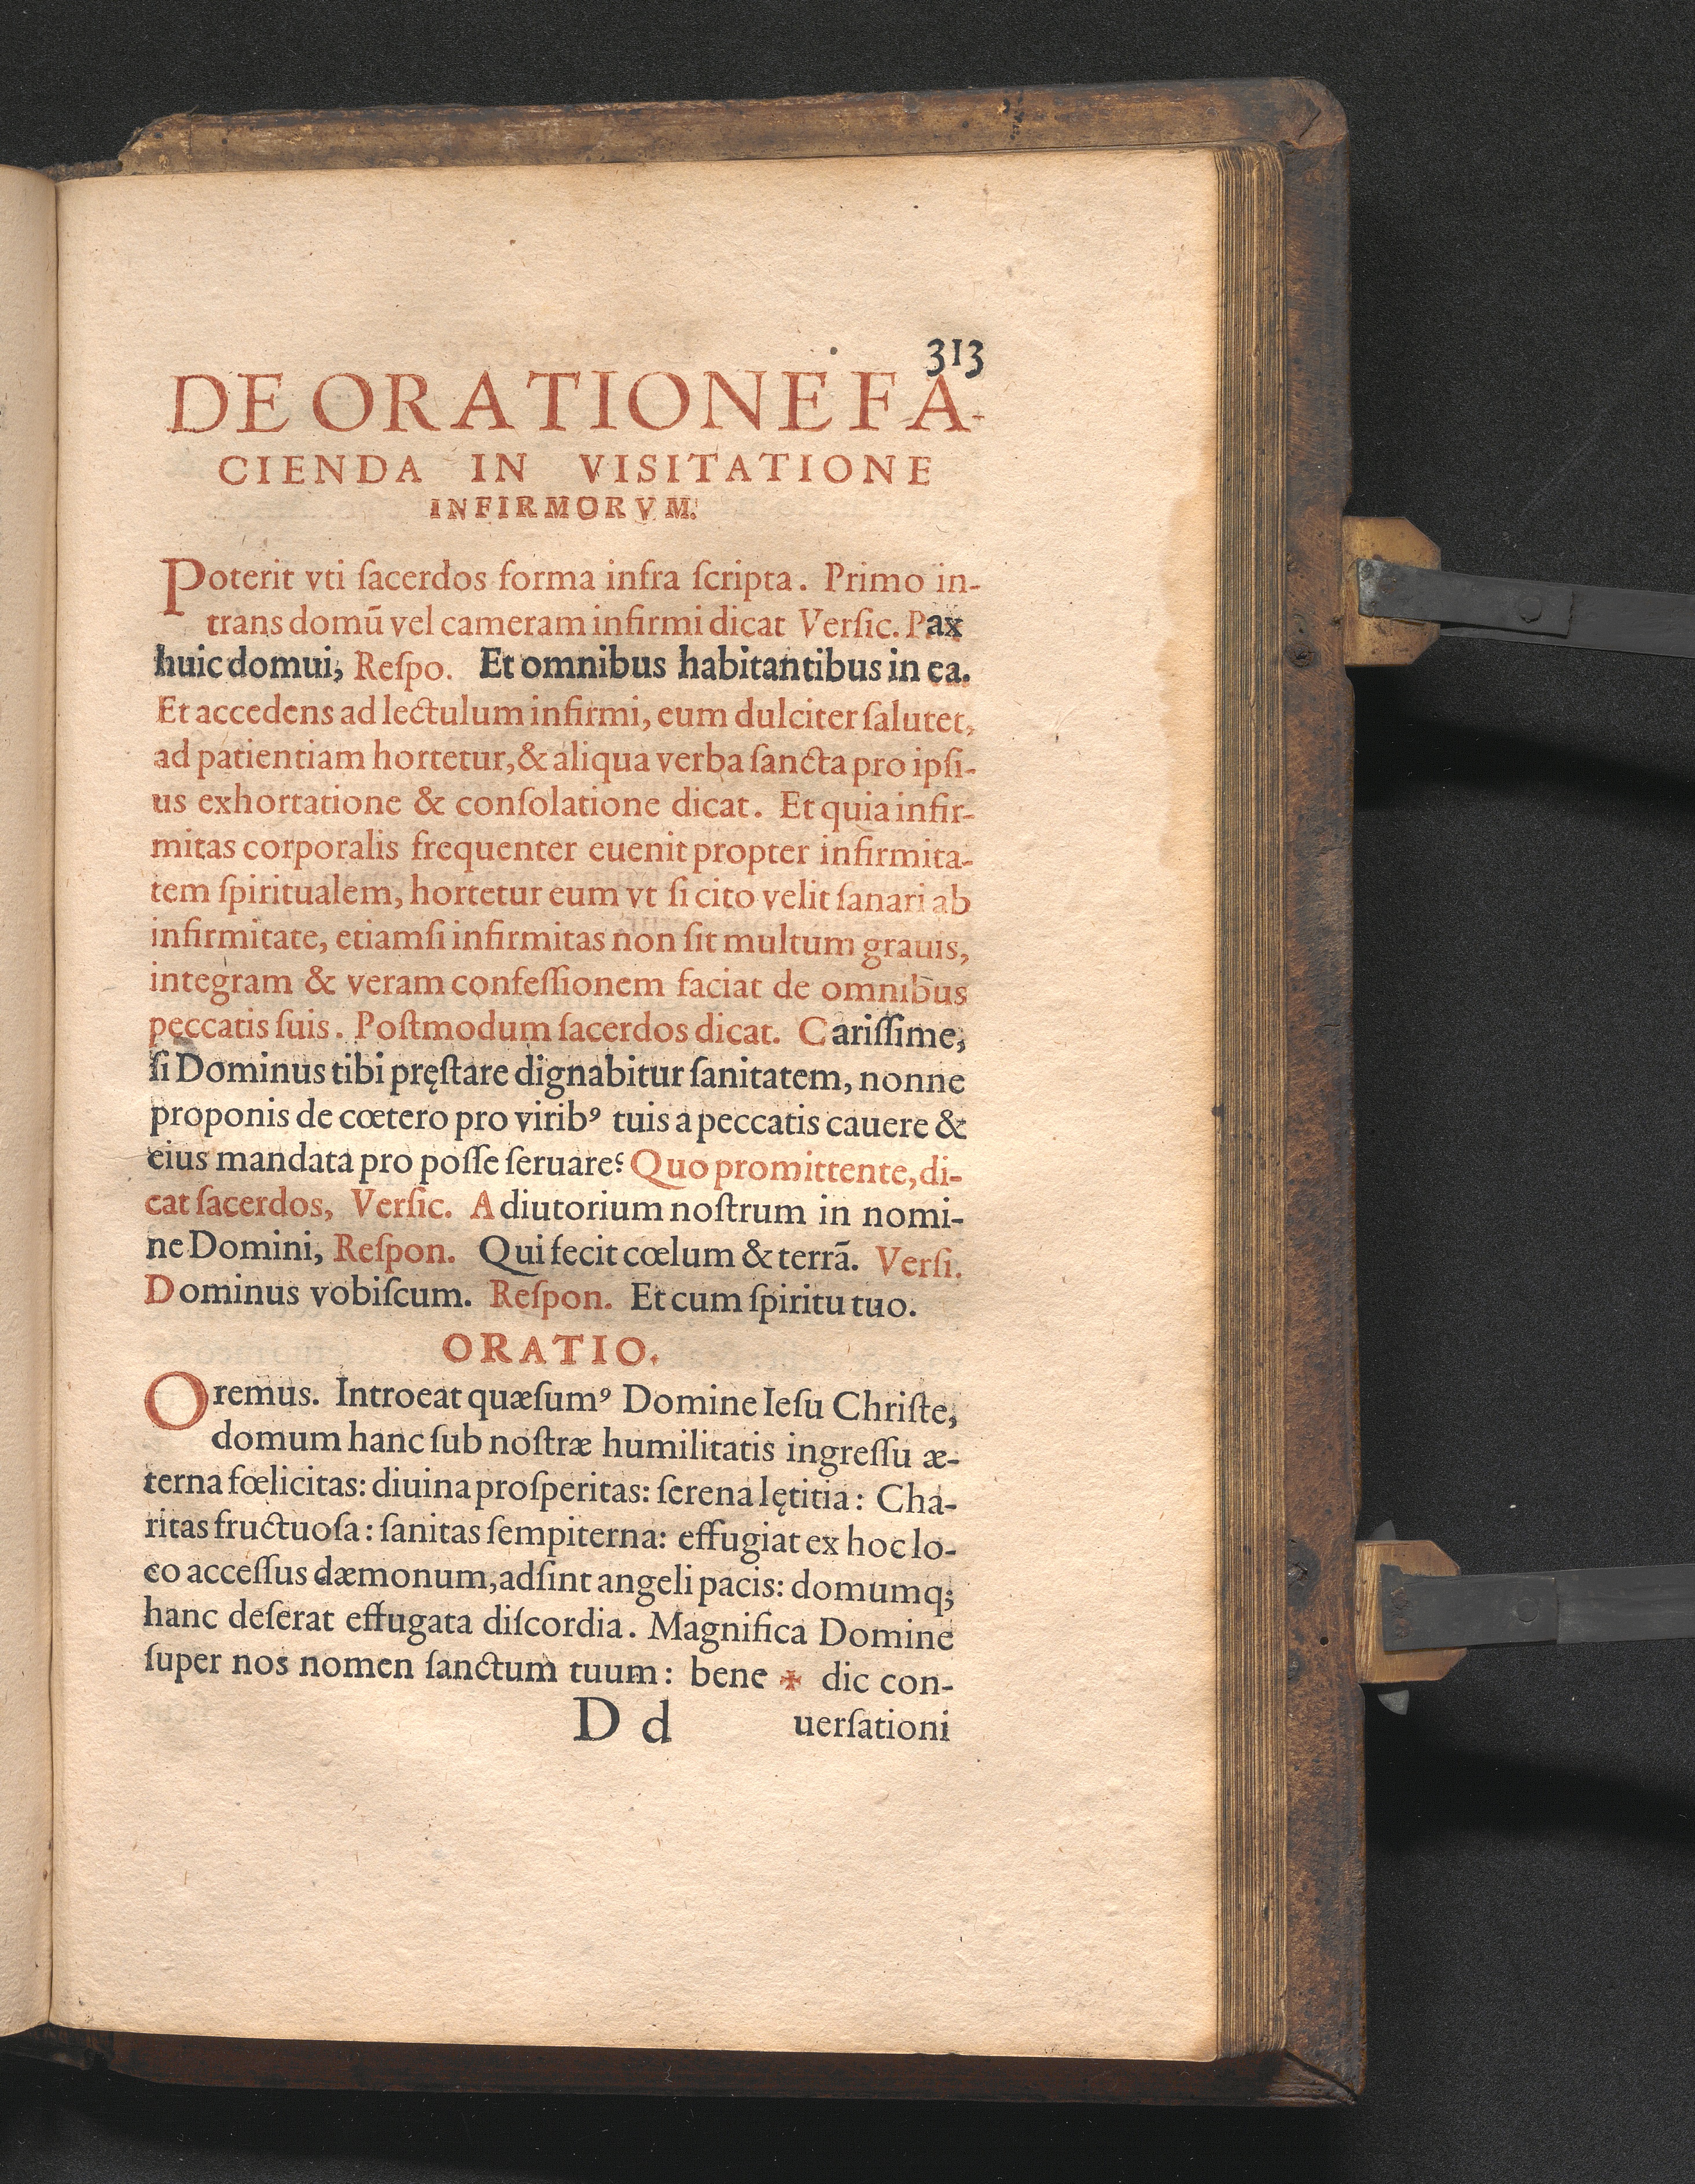 313
DE ORATIONE FA-
CIENDA IN VISITATIONE
INFIRMORVM.
Poterit vti ſacerdos forma infra ſcripta. Primo in-
trans domū vel cameram infirmi dicat Verſic. Pax
huic domui, Reſpo. Et omnibus habitantibus in ea.
Et accedens ad lectulum infirmi, eum dulciter ſalutet,
ad patientiam hortetur, & aliqua verba ſancta pro ipſi-
us exhortatione & conſolatione dicat. Et quia infir-
mitas corporalis frequenter euenit propter infirmita-
tem ſpiritualem, hortetur eum vt ſi cito velit ſanari ab
infirmitate, etiamſi infirmitas non ſit multum grauis,
integram & veram confeſſionem faciat de omnibus
peccatis ſuis. Poſtmodum ſacerdos dicat. Cariſſime,
ſi Dominus tibi pręſtare dignabitur ſanitatem, nonne
proponis de cœtero pro viribꝰ tuis a peccatis cauere &
eius mandata pro poſſe ſeruare? Quo promittente, di-
cat ſacerdos, Verſic. Adiutorium noſtrum in nomi-
ne Domini, Reſpon. Qui fecit cœlum & terrā. Verſi.
Dominus vobiſcum. Reſpon. Et cum ſpiritu tuo.
ORATIO.
Oremus. Introeat quæſumꝰ Domine Ieſu Chriſte,
domum hanc ſub noſtræ humilitatis ingreſſu æ-
terna fœlicitas: diuina proſperitas: ſerena lętitia: Cha-
ritas fructuoſa: ſanitas ſempiterna: effugiat ex hoc lo-
co acceſſus dæmonum, adſint angeli pacis: domumq;
hanc deſerat effugata diſcordia. Magnifica Domine
ſuper nos nomen ſanctum tuum: bene ✠ dic con-
D d uerſationi